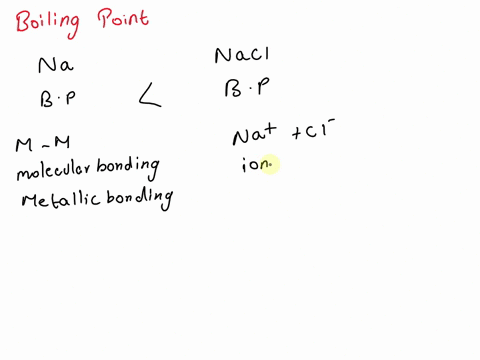 Boiling Point
Na NaCl
B.P < B.P
M-M Na⁺ + Cl⁻
molecular bonding ion
Metallic bonding